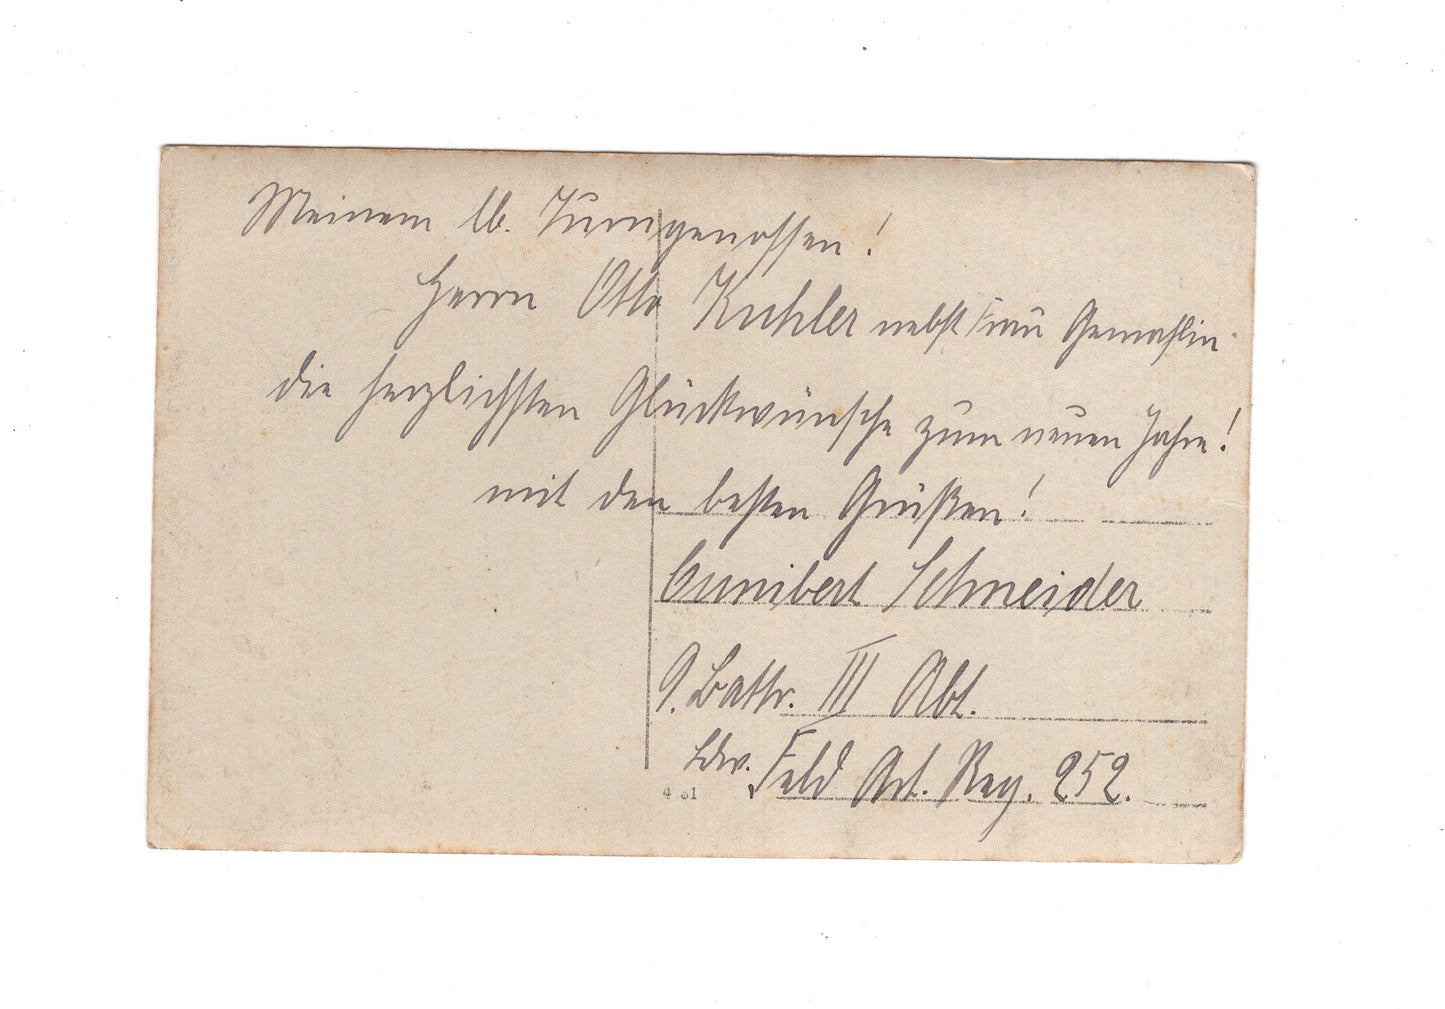 Meinem lb. Turngenossen!
Herrn Otto Kuhler nebst Frau Gemahlin
die herzlichsten Glückwünsche zum neuen Jahre!
mit den besten Grüßen!
Cunibert Schneider
9. Battr. III Abt.
Ldw. Feld Art. Reg. 252.
4 81